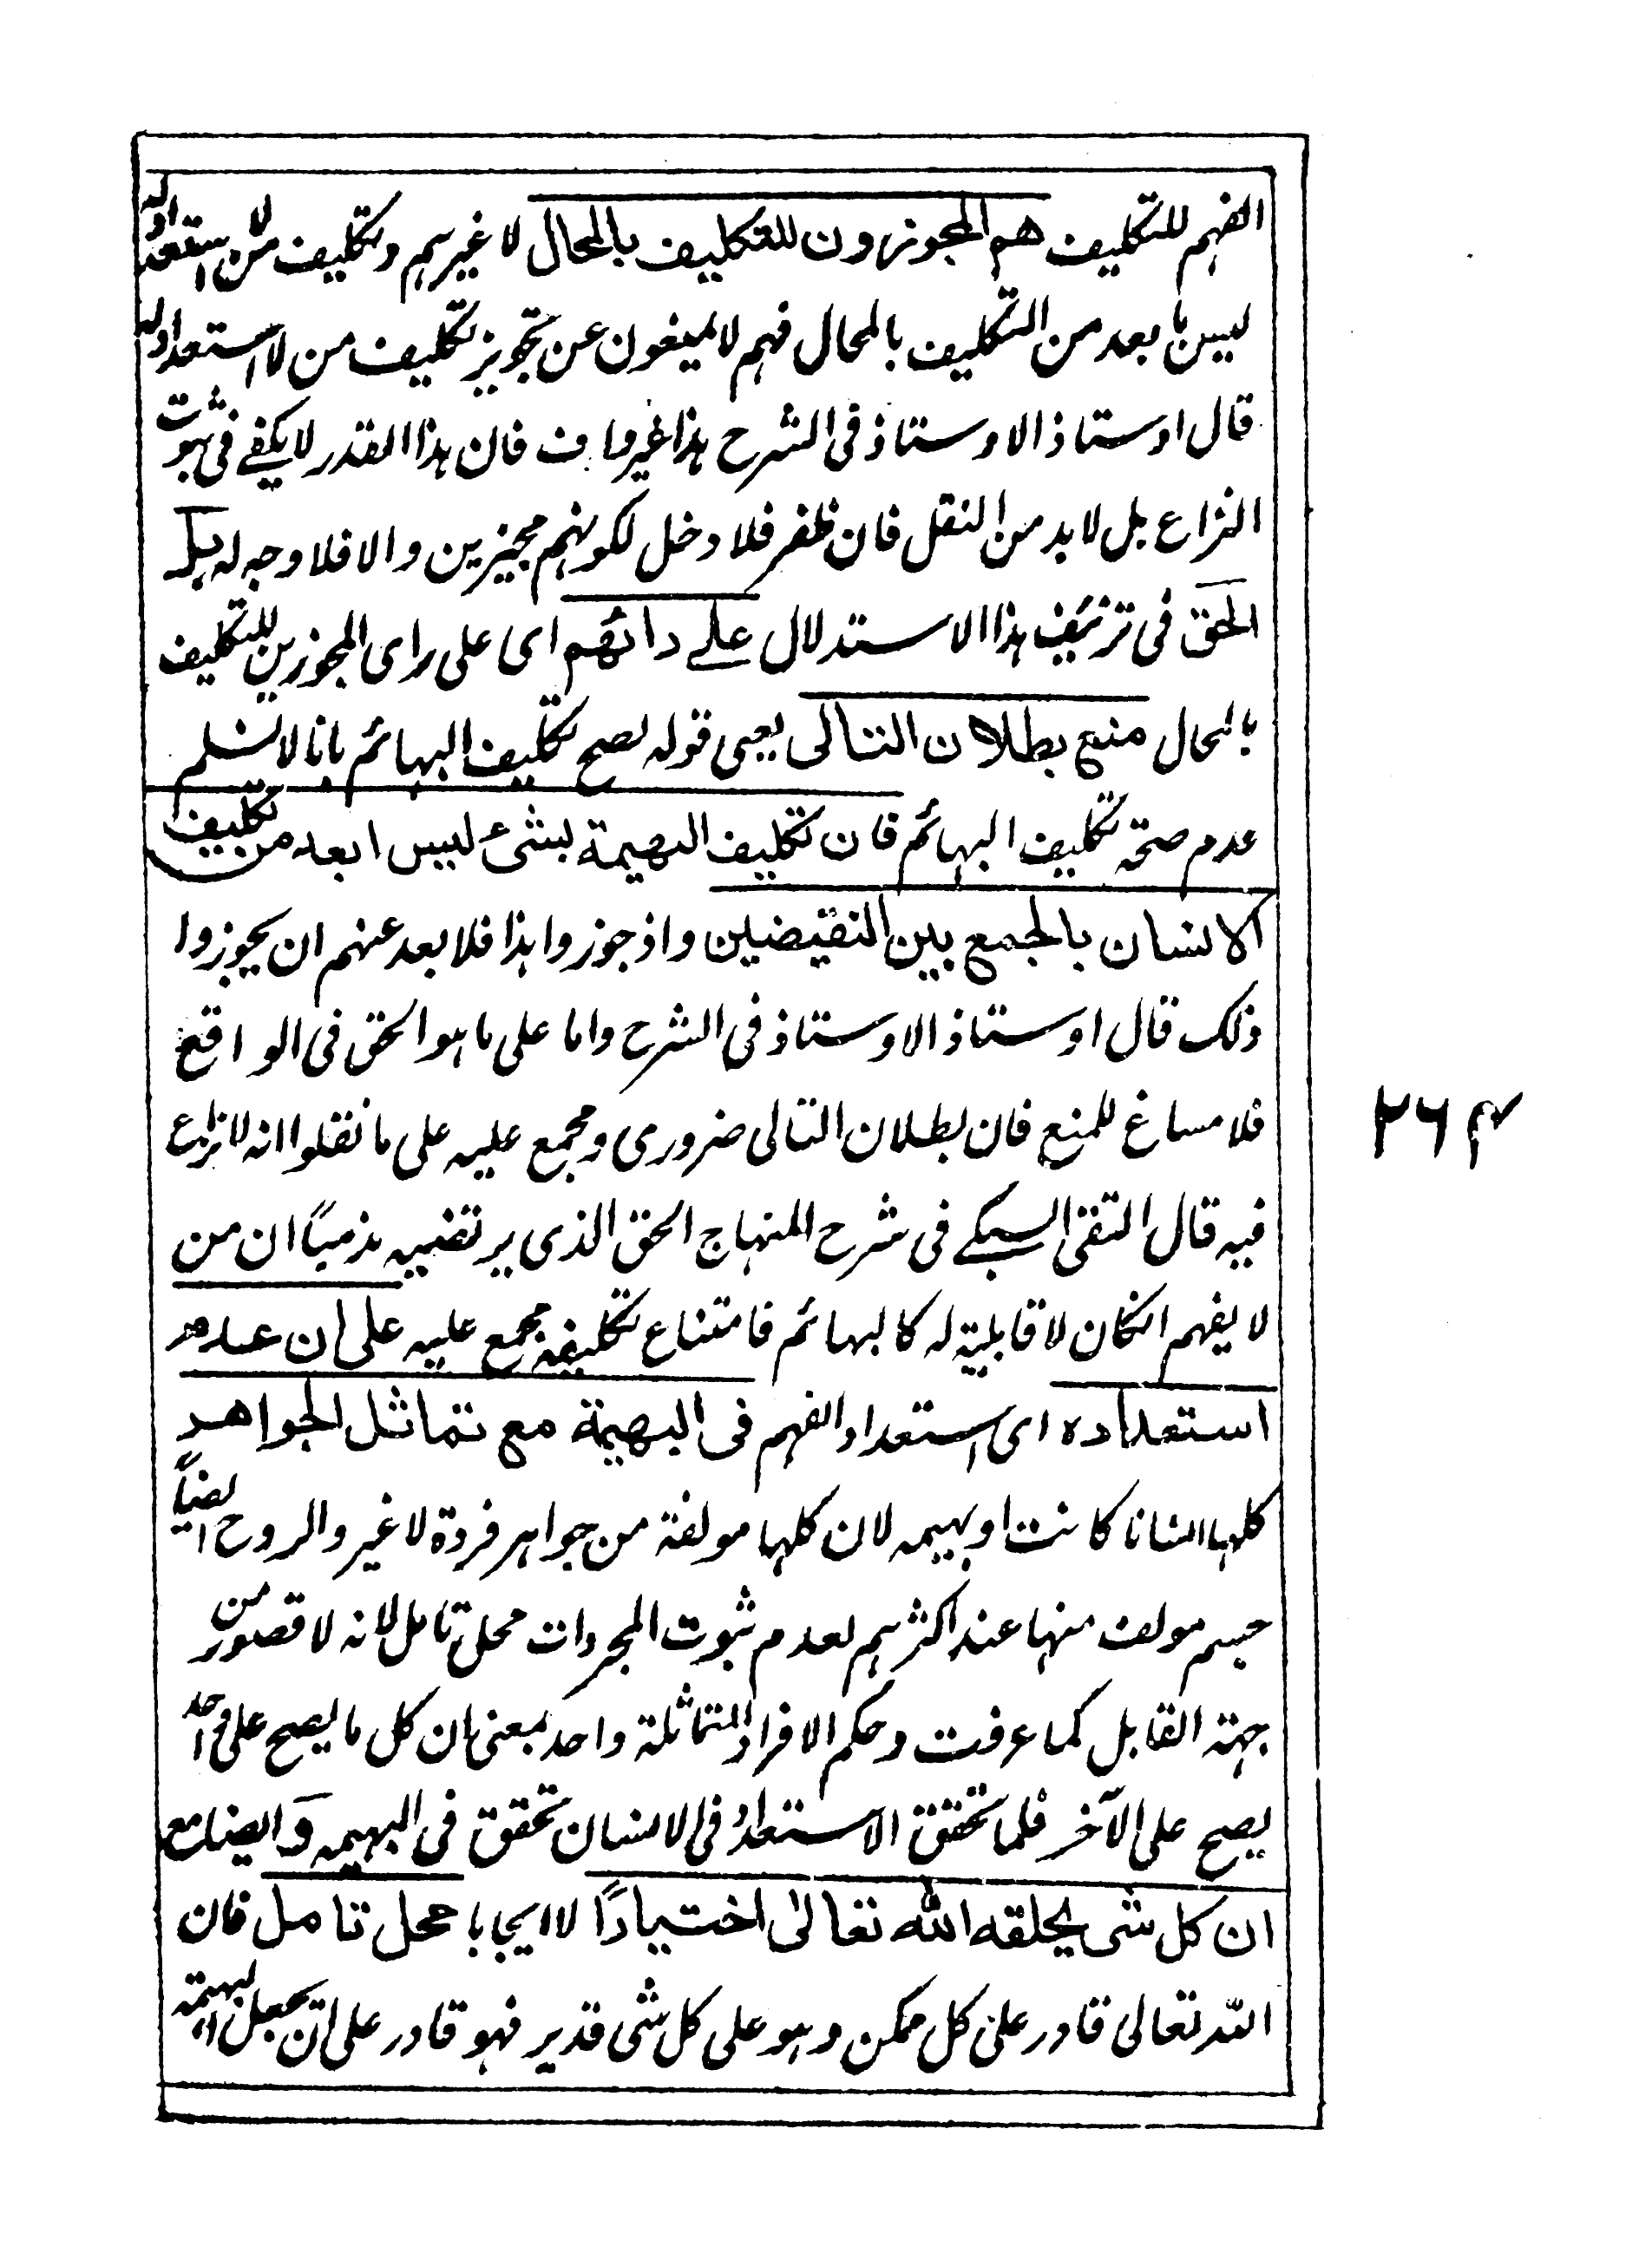 الفهم للتكليف هم المجوزون للتكليف بالمحال لا غيرهم وتكليف من لا استعداد له
ليس بابعد من التكليف بالمحال فهم لا يمنعون عن تجويز تكليف من لا استعداد له
قال اوستاذ الاوستاذ فى الشرح هذا غير واف فان هذا القدر لا يكفى فى ثبوت
النزاع بل لا بد من النقل فان ظفر فلا دخل لكونهم مجيزين والا فلا وجه له بل
الحق فى تزئيف هذا الاستدلال على رائهم اى على راى المجوزين للتكليف
بالمحال منع بطلان التالى يعنى قوله لصح تكليف البهائم بانا لا نسلم
عدم صحة تكليف البهائم فان تكليف البهيمة بشئ ليس ابعد من تكليف
الانسان بالجمع بين النقيضين واذ جوزوا هذا فلا بعد عنهم ان يجوزوا
ذلك قال اوستاذ الاوستاذ فى الشرح واما على ما هو الحق فى الواقع
فلا مساغ للمنع فان بطلان التالى ضرورى ومجمع عليه على ما نقلوا انه لا نزاع
فيه قال التقى السبكى فى شرح المنهاج الحق الذى يرتضيه مذهبًا ان من
لا يفهم انكان لا قابلية له كالبهائم فامتناع تكليفه مجمع عليه على ان عدم
استعداده اى استعداد الفهم فى البهيمة مع تماثل الجواهر
كلها انسانا كانت او بهيمه لان كلها مولفة من جواهر فردة لا غير والروح ايضاً
جسم مولف منها عند اكثرهم لعدم ثبوت المجردات محل تامل لانه لا قصور من
جهة القابل كما عرفت وحكم الافراد المتماثلة واحد بمعنى ان كل ما يصح على احد
يصح على الآخر فلما تحقق الاستعداد فى الانسان تحقق فى البهيمه وايضا مع
ان كل شى يخلقه الله تعالى اختيارًا لا ايجابا محل تامل فان
الله تعالى قادر على كل ممكن وهو على كل شى قدير فهو قادر على ان يجعل البهيمة
۲۶۴